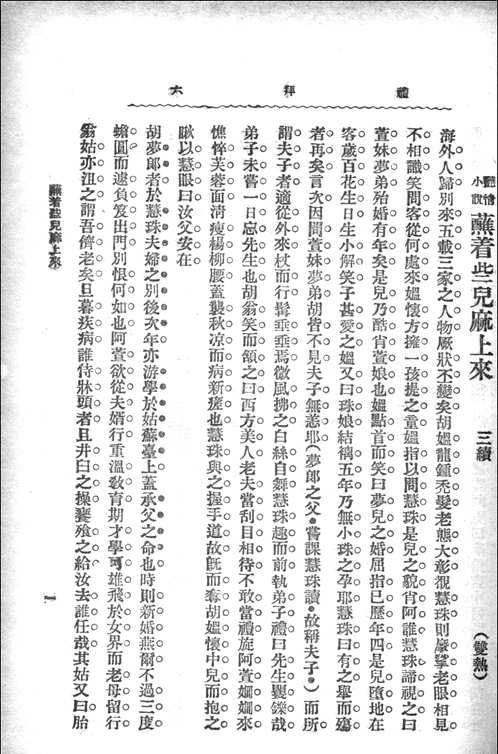 禮拜六
艷情小說 蘸着些兒麻上來 三續 （雙熱）
海外人歸別來五載三家之人物厥狀不變矣胡媼龍鍾禿髮老態大彰視慧珠則摩挲老眼相見
不相識笑問客從何處來媼懷方擁一孩提之童媼指以問慧珠是兒之貌肖阿誰慧珠諦視之曰
萱妹夢弟殆婚有年矣是兒乃酷肖萱娘也媼點首而笑曰夢兒之婚屈指已歷年四是兒墮地在
客歲百花生日生小解笑子甚愛之媼又曰珠娘結褵五年乃無小珠之孕耶慧珠曰有之舉而殤
者再矣言次因問萱妹夢弟胡皆不見夫子無恙耶（夢郎之父嘗課慧珠讀故稱夫子）而所
謂夫子者適從外來杖而行髯垂垂焉微風拂之白絲自舞慧珠趣而前執弟子禮曰先生矍鑠哉
弟子未嘗一日忘先生也胡翁笑而頷之曰西方美人老夫當刮目相待不敢當禮旋阿萱嫻嫻來
憔悴芙蓉面清瘦楊柳腰蓋襲秋凉而病新瘥也慧珠與之握手道故旣而奪胡媼懷中兒而抱之
瞅以慧眼曰汝父安在
胡夢郎者於慧珠夫婦之別後次年亦游學於姑蘇臺上蓋承父之命也時則新婚燕爾不過三度
蟾圓而遽負笈出門別恨何如也阿萱欲從夫婿行重溫敎育期才學可雄飛於女界而老母留行
翁姑亦沮之謂吾儕老矣旦暮疾病誰侍牀頭者且井臼之操饔飱之給汝去誰任哉其姑又曰胎
蘸着些兒麻上來
一